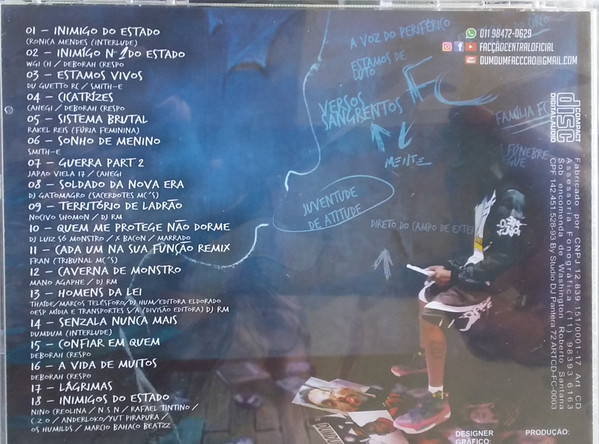 01 – INIMIGO DO ESTADO
CRONICA MENDES (INTERLUDE)
02 – INIMIGO Nº 1 DO ESTADO
WGI CH / DEBORAH CRESPO
03 – ESTAMOS VIVOS
DU GUETTO RC / SMITH-E
04 – CICATRÍZES
CAHEGI / DEBORAH CRESPO
05 – SISTEMA BRUTAL
RAKEL REIS (FÚRIA FEMININA)
06 – SONHO DE MENINO
SMITH-E
07 – GUERRA PART 2
JAPAO VIELA 17 / CAHEGI
08 – SOLDADO DA NOVA ERA
DJ GATOMAGRO (SACERDOTES MC'S)
09 – TERRITÓRIO DE LADRÃO
NOCIVO SHOMON / DJ RM
10 – QUEM ME PROTEGE NÃO DORME
DJ LUIZ SÓ MONSTRO / X BACON / MARRADO
11 – CADA UM NA SUA FUNSÃO REMIX
FRAN (TRIBUNAL MC'S)
12 – CAVERNA DE MONSTRO
MANO AGAPHE / DJ RM
13 – HOMENS DA LEI
THAIDE/MARCOS TELESFORO/DJ HUM/EDITORA ELDORADO
OESP MÍDIA E TRANSPORTES S/A (DIVISÃO EDITORA) DJ RM
14 – SENZALA NUNCA MAIS
DUMDUM (INTERLUDE)
15 – CONFIAR EM QUEM
DEBORAH CRESPO
16 – A VIDA DE MUITOS
DEBORAH CRESPO
17 – LÁGRIMAS
18 – INIMIGOS DO ESTADO
NINO CREOLINA / N S N / RAFAEL TINTINO /
( Z O / ANDERLOKO/YUT PIRAPURA /
OS HUMILDS / MARCIO BAHACO BEATZZ
A VOZ DO PERIFÉRICO
ESTAMOS DE
LUTO
VERSOS
SANGRENTOS
FC
MENTE
JUVENTUDE
DE ATITUDE
DIRETO DO CAMPO DE EXTER
011 98472-0629
FACÇÃOCENTRALOFICIAL
DUMDUMFACCCAO@GMAIL.COM
FAMÍLIA FC
FÚNEBRE
COMPACT
disc
DIGITAL AUDIO
Fabricado por CNPJ.12.839.151/0001-17 Art CD
Assessoria Fonográfica (11) 98393-6163
Sob encomenda de Washington Roberto Santana
CPF 142.451.528-93 By Studio DJ Pantera 72 ARTCD-FC-0003
DESIGNER
GRÁFICO:
PRODUÇÃO: